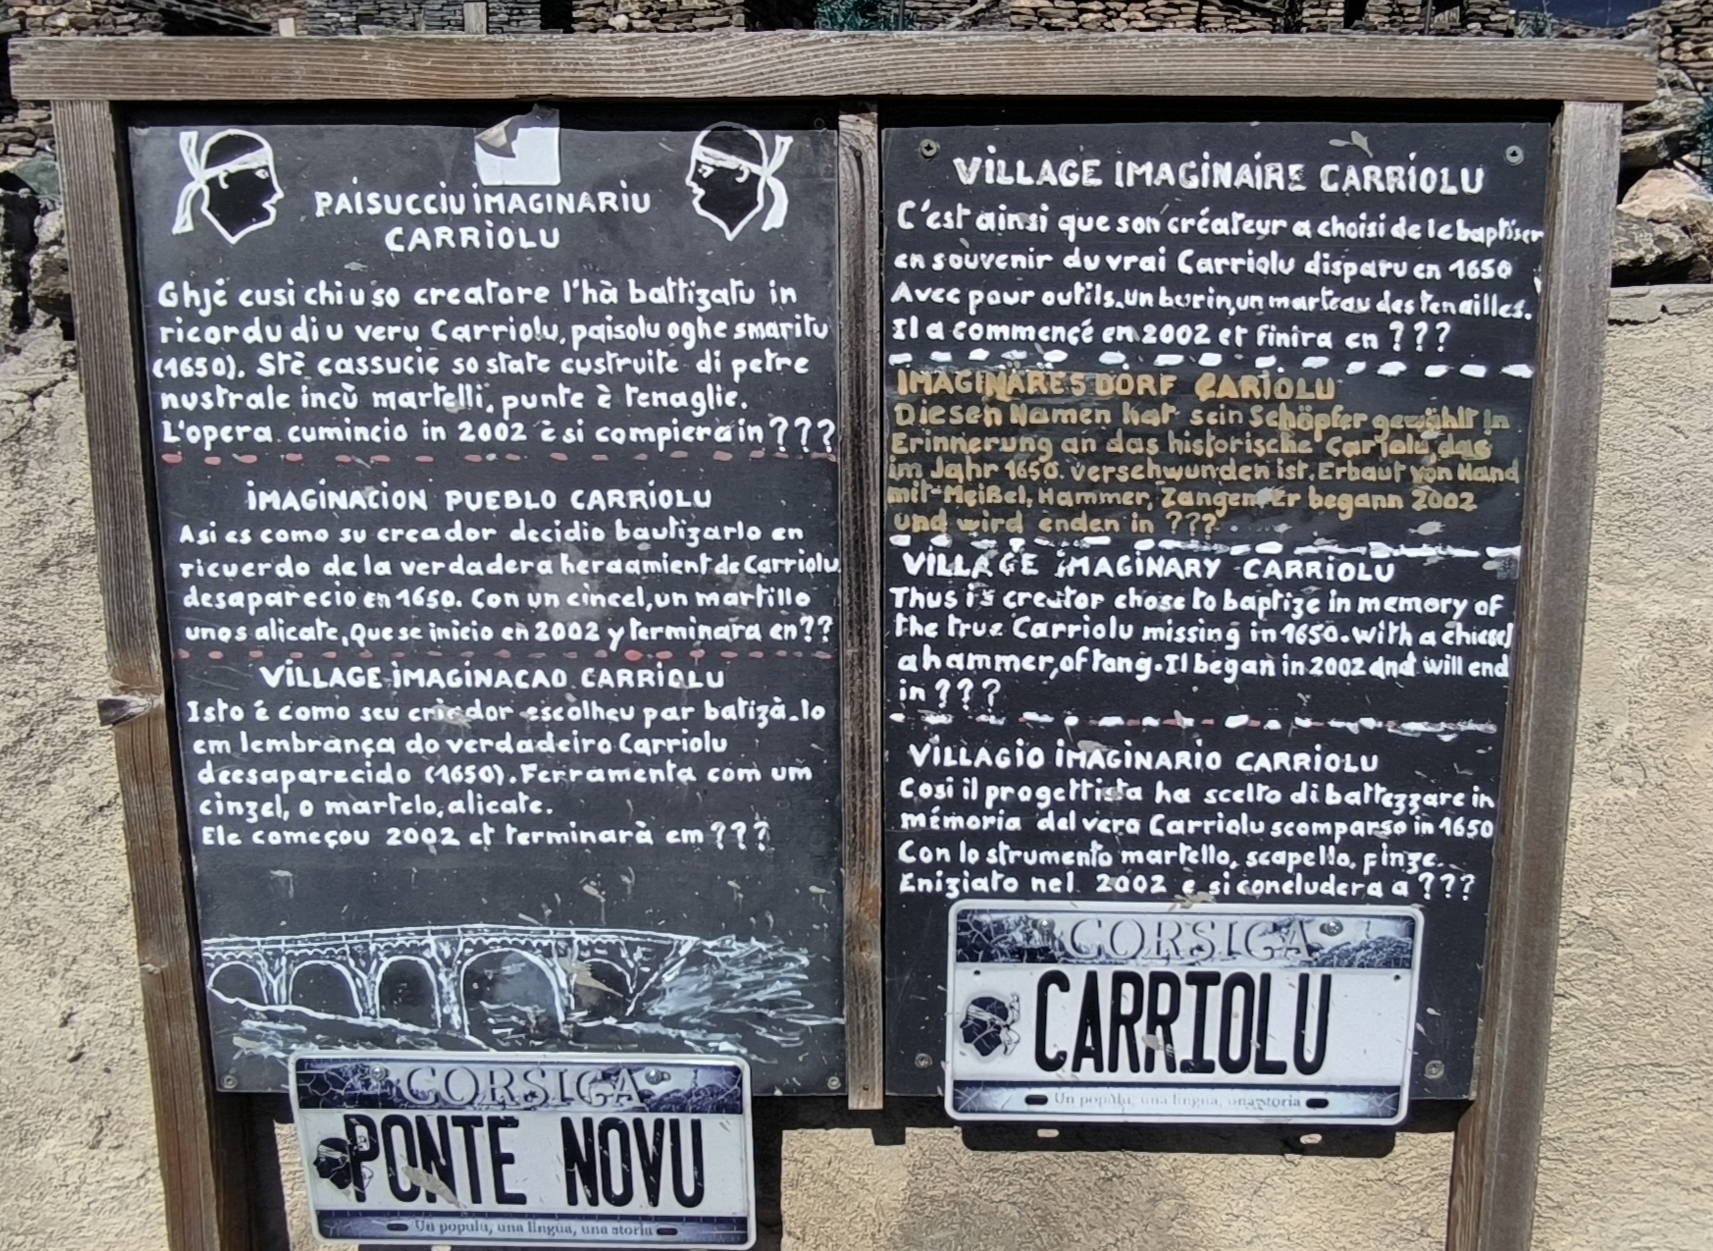 PAISUCCIU IMAGINARIU
CARRIOLU
Ghjé cusi chi u so creatore l'hà battizatu in
ricordu di u veru Carriolu, paisolu oghe smaritu
(1650). Stè cassucie so state custruite di petre
nustrale incù martelli, punte è tenaglie.
L'opera cumincio in 2002 è si compiera in ???
IMAGINACION PUEBLO CARRIOLU
Asi es como su creador decidio bautizarlo en
ricuerdo de la verdadera heraamient de Carriolu
desaparecio en 1650. Con un cincel, un martillo
unos alicate, Que se inicio en 2002 y terminara en ??
VILLAGE IMAGINACAO CARRIOLU
Isto é como seu criador escolheu par batizà-lo
em lembrança do verdadeiro Carriolu
deesaparecido (1650). Ferramenta com um
cinzel, o martelo, alicate.
Ele começou 2002 et terminarà em ???
CORSICA
PONTE NOVU
Un populu, una lingua, una storia
VILLAGE IMAGINAIRE CARRIOLU
C'est ainsi que son créateur a choisi de le baptiser
en souvenir du vrai Carriolu disparu en 1650
Avec pour outils, un burin, un marteau des tenailles.
Il a commençé en 2002 et finira en ???
IMAGINÄRES DORF CARIOLU
Diesen Namen hat sein Schöpfer gewählt In
Erinnerung an das historische Cariolu, das
im Jahr 1650 verschwunden ist. Erbaut von Hand
mit Meißel, Hammer, Zangen. Er begann 2002
und wird enden in ???
VILLAGE IMAGINARY CARRIOLU
Thus is creator chose to baptize in memory of
the true Carriolu missing in 1650. with a chiesel
a hammer, of tang. Il began in 2002 and will end
in ???
VILLAGIO IMAGINARIO CARRIOLU
Cosi il progettista ha scelto di battezzare in
mémoria del vero Carriolu scomparso in 1650
Con lo strumento martello, scapello, pinze.
Eniziato nel 2002 e si concludera a ???
CORSICA
CARRIOLU
Un populu, una lingua, una storia